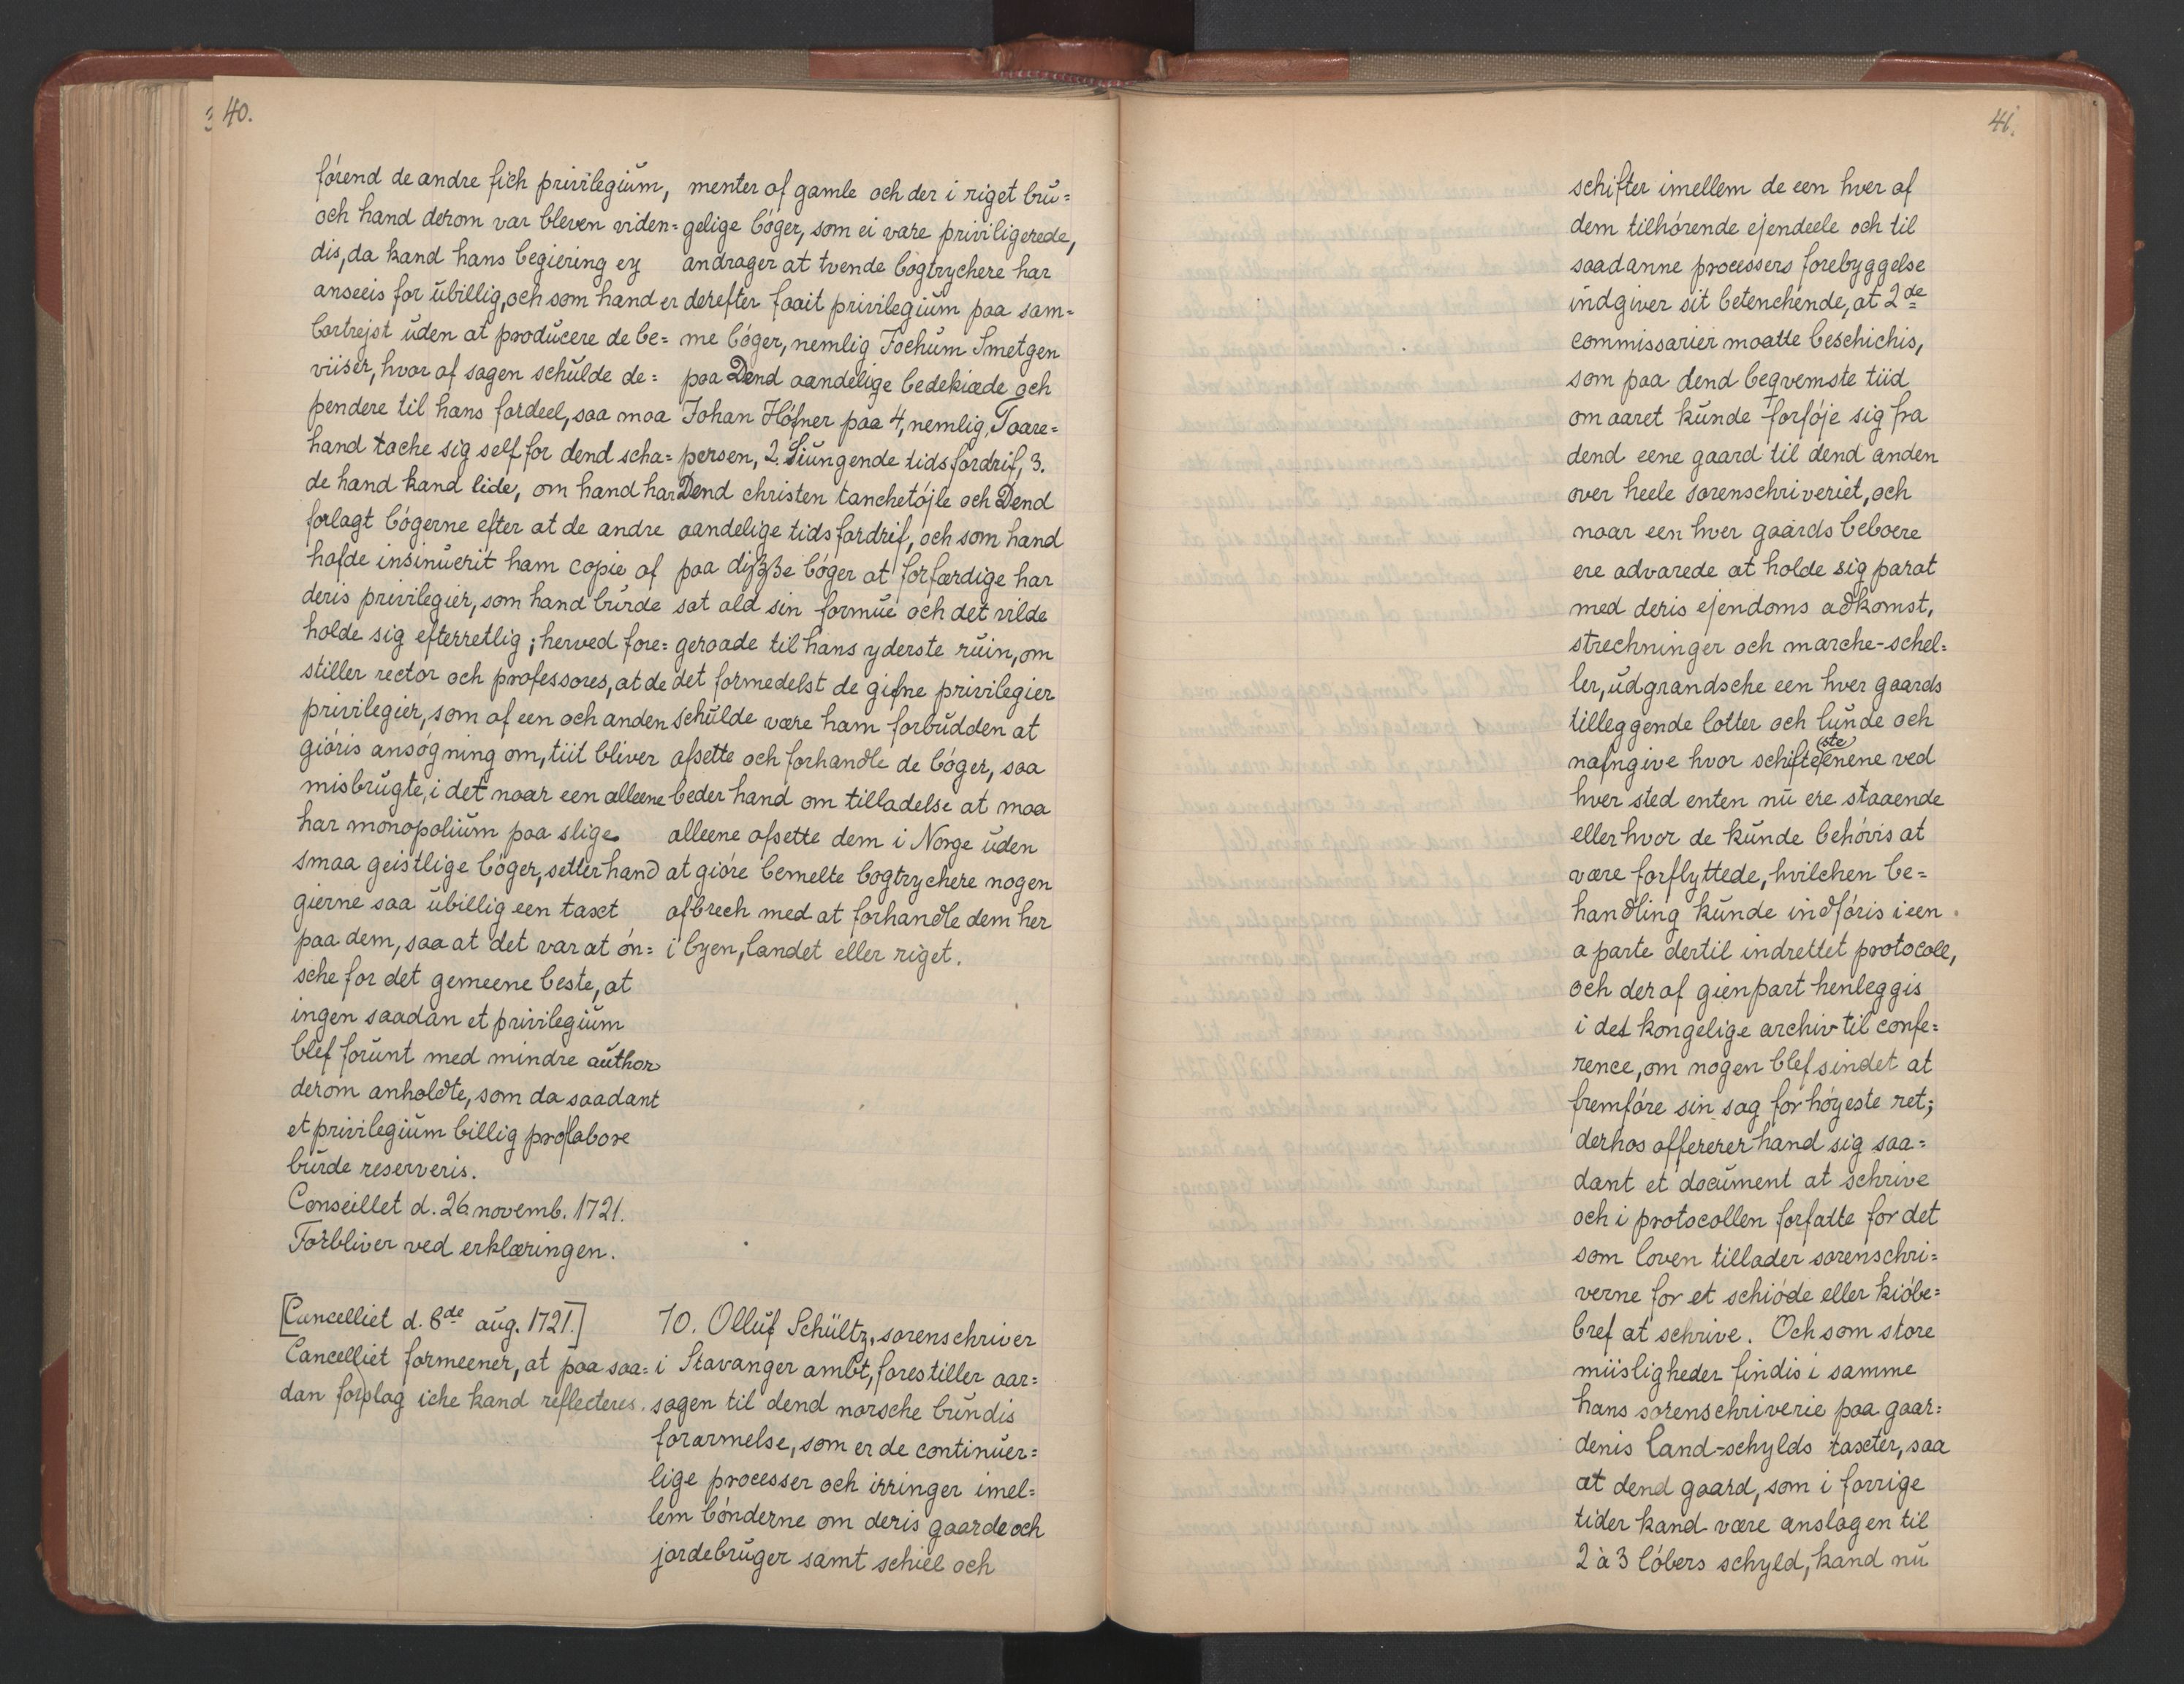 40.
förend de andre fich privilegium,
och hand derom var bleven viden=
dis, da kand hans begiering ey
anseeis for ubillig, och som hand er
bortrejst uden at producere de be=
viiser, hvor af sagen schulde de=
pendere til hans fordeel, saa maa
hand tache sig self for dend scha=
de hand kand lide, om hand har
forlagt bögerne efter at de andre
hafde insinuerit ham copie af
deris privilegier, som hand burde
holde sig efterretlig; herved fore=
stiller rector och professores, at de
privilegier, som af een och anden
giöris ansögning om, tiit bliver
misbrugte, i det naar een alleene
har monopolium paa slige
smaa geistlige böger, setter hand
gierne saa ubillig een taxt
paa dem, saa at det var at ön=
sche for det gemeene beste, at
ingen saadan et privilegium
blef forunt med mindre author
derom anholdte, som da saadant
et privilegium billig pro labore
burde reserveris.
Conseillet d. 26 novemb. 1721.
Forbliver ved erklæringen.
menter af gamle och der i riget bru=
gelige böger, som ei vare priviligerede,
andrager at tvende bogtrychere har
derefter faait privilegium paa sam=
me böger, nemlig Jochum Smetgen
paa Dend aandelige bedekiæde och
Johan Höfner paa 4, nemlig, Taare=
persen, 2. Siungende tidsfordrif, 3.
Dend christen tanchetöjle och Dend
aandelige tidsfordrif, och som hand
paa dißße böger at forfærdige har
sat ald sin formue och det vilde
geraade til hans yderste ruin, om
det formedelst de gifne privilegier
schulde være ham forbudden at
afsette och forhandle de böger, saa
beder hand om tilladelse at maa
alleene afsette dem i Norge uden
at giöre bemelte bogtrychere nogen
afbrech med at forhandle dem her
i byen, landet eller riget.
[Cancelliet d. 8de aug. 1721.]
Cancelliet formeener, at paa saa=
dan forslag iche kand reflecteres.
70. Olluf Schültz, sorenschriver
i Stavanger ambt, forestiller aar=
sagen til dend norsche bundis
forarmelse, som er de continuer=
lige processer och irringer imel=
lem bönderne om deris gaarde och
jordebruger samt schiel och
41.
schifter imellem de een hver af
dem tilhörende ejendeele och til
saadanne processers forebyggelse
indgiver sit betenchende, at 2de
commissarier maatte beschichis,
som paa dend beqvemste tiid
om aaret kunde forföje sig fra
dend eene gaard til dend anden
over heele sorenschriveriet, och
naar een hver gaards beboere
ere advarede at holde sig parat
med deris ejendoms adkomst,
strechninger och marche-schel=
ler, udgrandsche een hver gaards
tilleggende lotter och lunde och
nafngive hvor schifte(ste)enene ved
hver sted enten nu ere staaende
eller hvor de kunde behövis at
være forflyttede, hvilchen be=
handling kunde indföris i een
a parte dertil indrettet protocoll,
och deraf gienpart henleggis
i det kongelige archiv til confe=
rence, om nogen blef sindet at
fremföre sin sag for höyeste ret;
derhos offererer hand sig saa=
dant et document at schrive
och i protocollen forfatte for det
som loven tillader sorenschri=
verne for et schiöde eller kiöbe=
bref at schrive. Och som store
miisligheder findis i samme
hans sorenschriverie paa gaar=
denis land-schylds taxter, saa
at dend gaard, som i forrige
tider kand være anslagen til
2 à 3 löbers schyld, kand nu